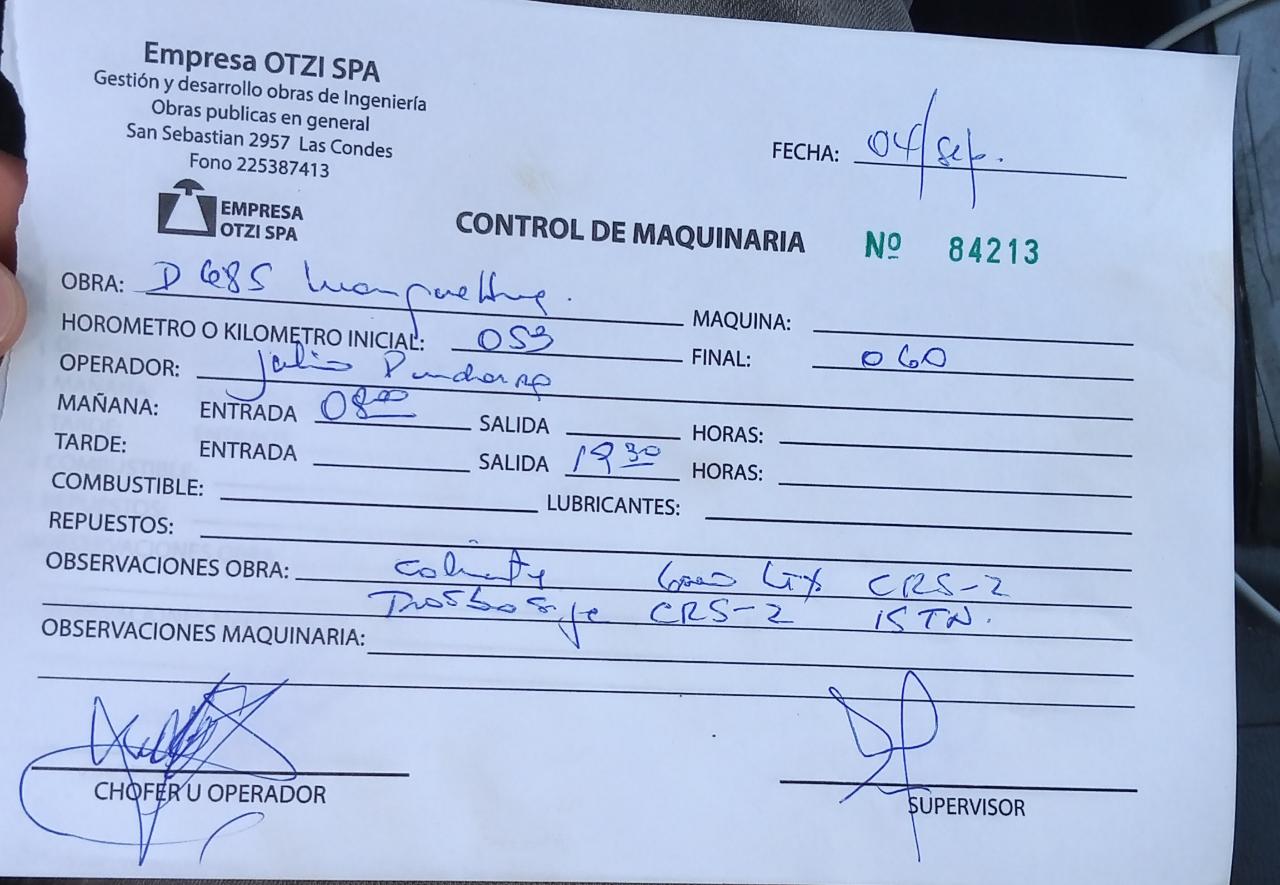 Empresa OTZI SPA
Gestión y desarrollo obras de Ingeniería
Obras publicas en general
San Sebastian 2957 Las Condes
Fono 225387413
FECHA: 04/Sep.
EMPRESA
OTZI SPA
CONTROL DE MAQUINARIA Nº 84213
OBRA: D 685
MAQUINA:
HOROMETRO O KILOMETRO INICIAL: 053 FINAL: 060
OPERADOR: Julio
MAÑANA: ENTRADA 08:00 SALIDA HORAS:
TARDE: ENTRADA SALIDA 19 30 HORAS:
COMBUSTIBLE: LUBRICANTES:
REPUESTOS:
OBSERVACIONES OBRA: CRS-2
CRS-2 15 TN.
OBSERVACIONES MAQUINARIA:
CHOFER U OPERADOR SUPERVISOR